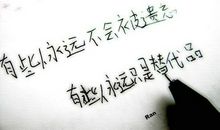 有些人永远不会衣皮意忘
有些人永远只是替代品
Ran